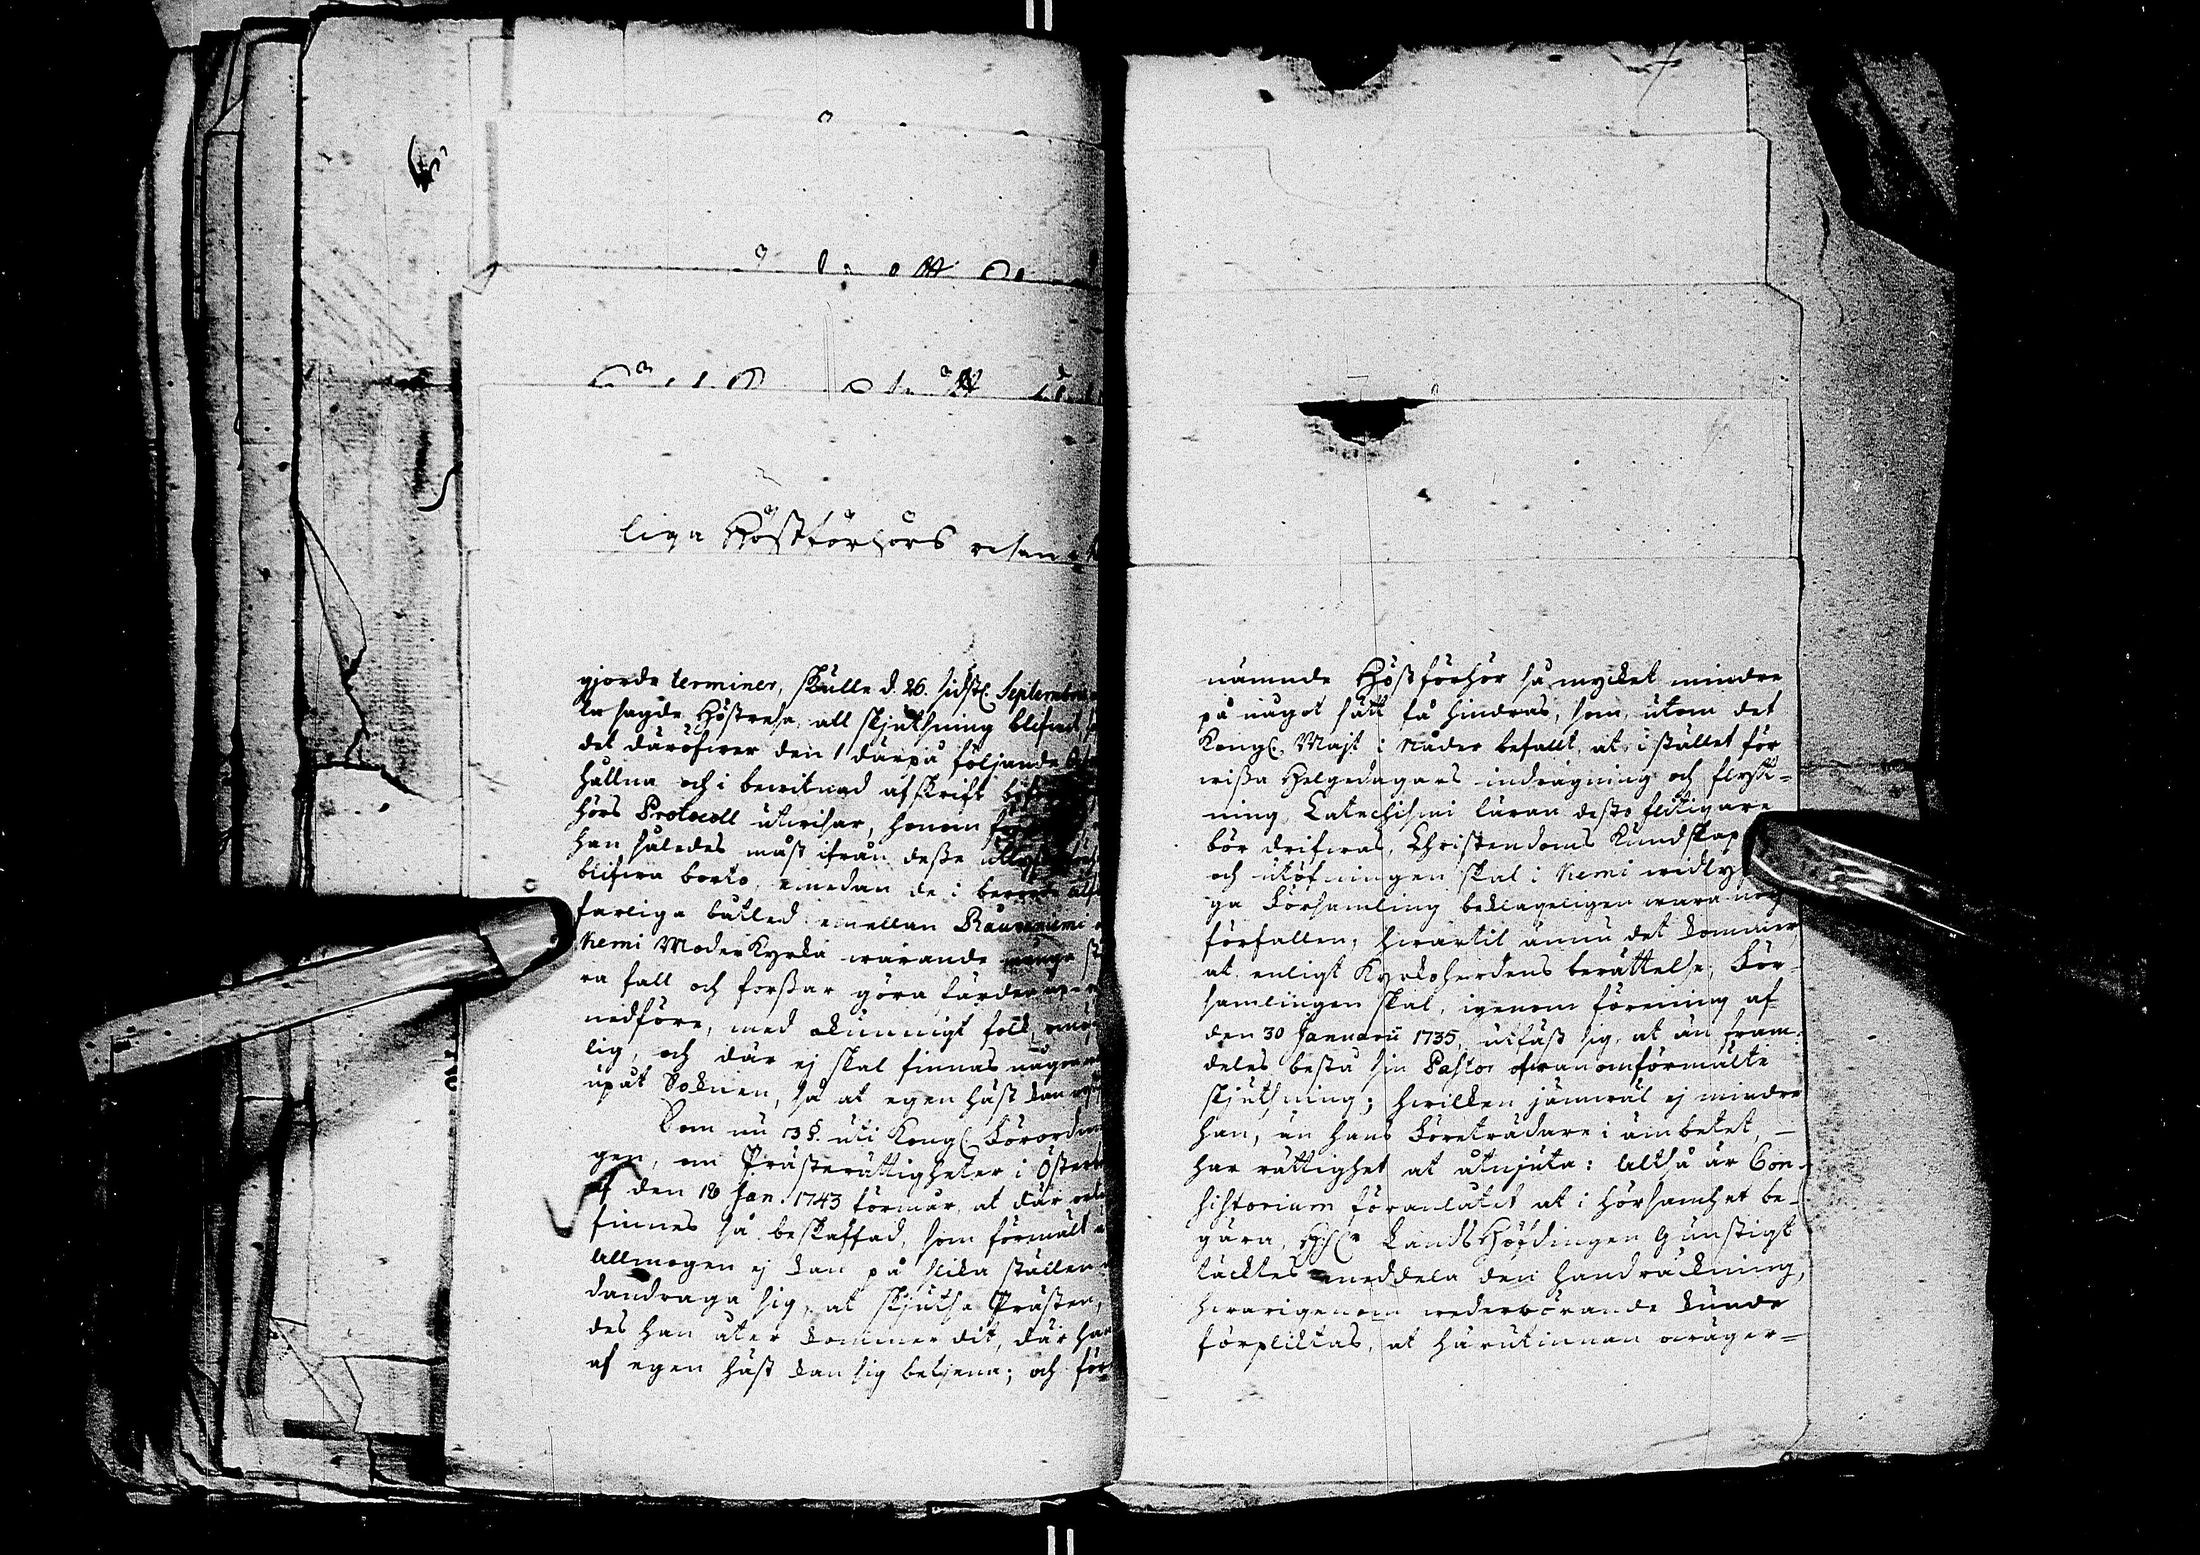 liga Höstförhörs resan
gjorde terminer, skulle d. 26. sidstl. Septembr
la sagde Höstresa, all skjutsning blifvit
det däröfwer den 1 därpå följande
hållna och i bewitnad afskrift
hörs Protocoll utwisar, honom
han således måst ifrån desse
blifwa borto, emedan de i
farliga båtled emellan Rauvaniemi
Kemi Moderkyrka warande många
ra fall och forssar göra färden
nedföre, med okunnigt folk,
lig, och där ej skal finnas någon
upåt Soknen, så at egen häst kan
Som nu 3 §. uti Kongl. Förordnin
gen, om Prästerättigheter i Österb
af den 18 Jan. 1743 förmår, at där
finnes så beskaffad, som förmält
Allmogen ej kan på slika ställen
dandraga sig, at skjutsa Prästen,
des han åter kommer dit, där han
af egen häst kan sig betjena; och för
nämnde Höstförhör så mycket mindre
på något sätt få hindras, som, utom det
Kongl. Majt i Nåder befallt, at i stället för
wissa Helgedagars indragning och flytt=
ning, Catechismi läran desto flitigare
bör drifwas, Christendoms Kundskap
och utöfningen skal i Kemi widly
ga Församling beklageligen wara nog
förfallen; hwartil ännu det kommer
at enligt Kyrkoherdens berättelse, För-
samlingen skal, igenom förening af
den 30 Januarii 1735, utfäst sig, at än fram-
deles bestå sin Pastor ofwanomförmälte
skjutsning; hwilken jämwäl ej mindre
han, än hans Företrädare i ämbetet, —
har rättighet at åtnjuta: Altså är Con-
sistorium föranlåtet at i hörsamhet be-
gära, H:r LandsHöfdingen Gunstigt
täcktes meddela den handräckning,
hwarigenom wederbörande kunde
förpliktas, at härutinnan oräger=